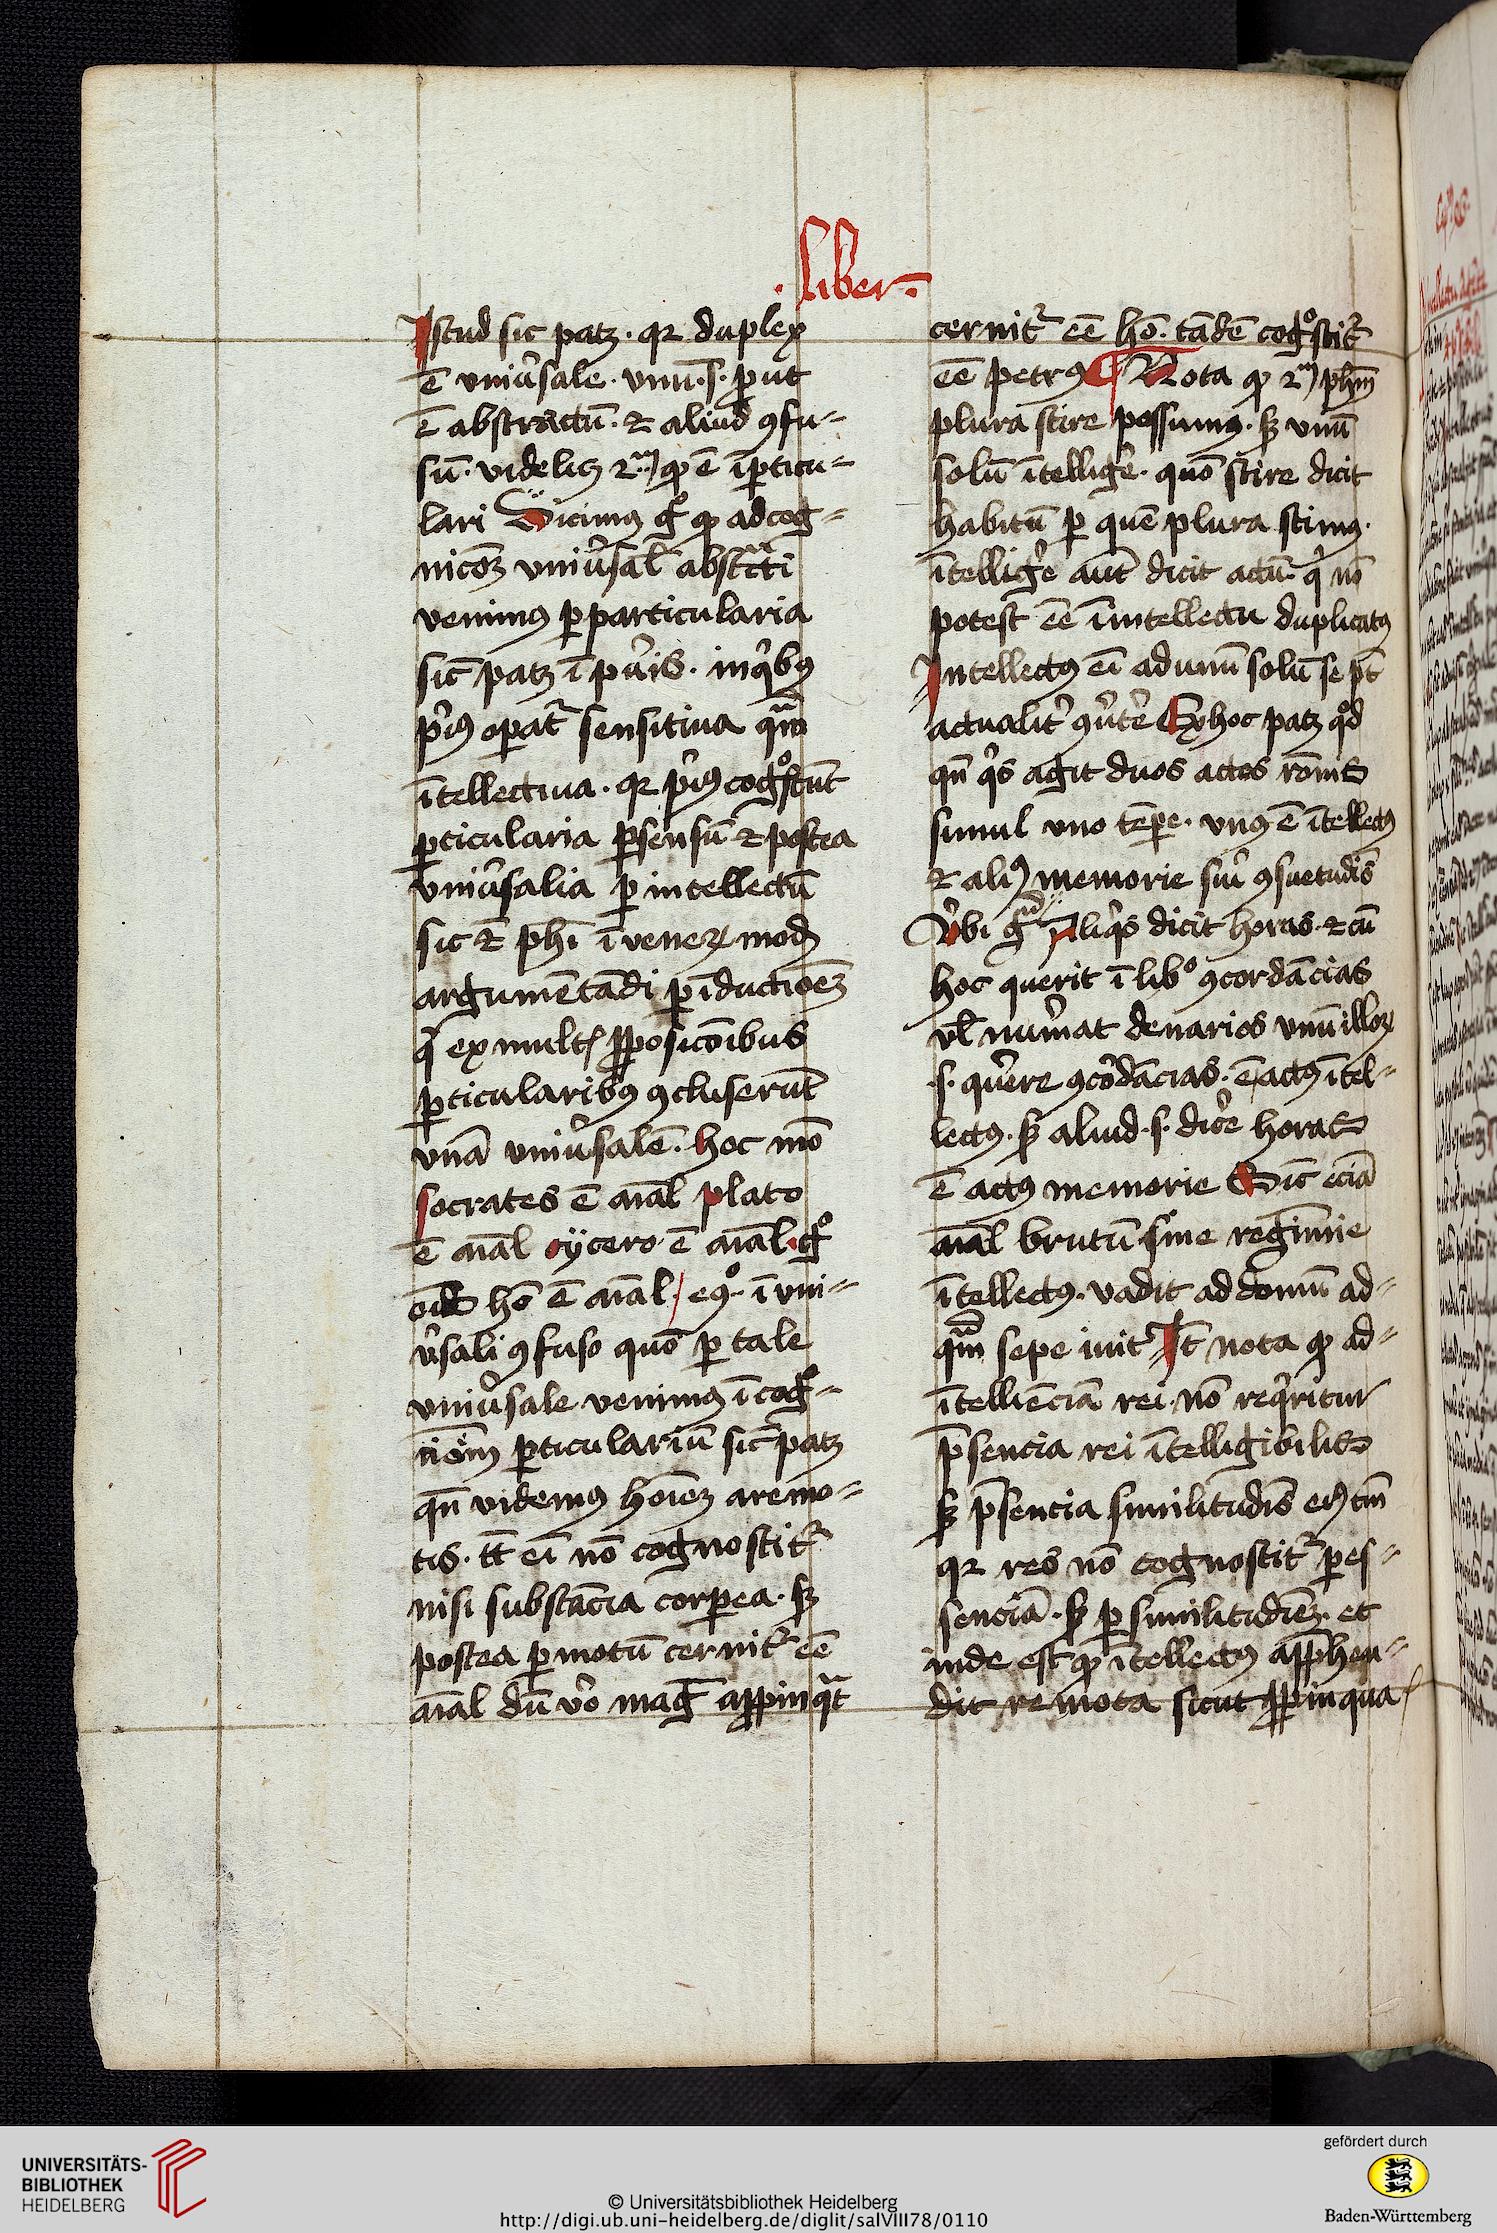 . liber .
Istud sic patꝫ · qr duplex
ē vniu̓sale · vnū · s · ꝓut
ē abstractū · ⁊ aliud ꝯfu⸗
sū · videlitꝫ 2m ꝙ ē ī ꝑticu⸗
lari Dicimꝰ gͦ ꝙ ad cog⸗
nicōꝫ vniu̓sal̄ abstᷓcti
venimꝰ ꝑ particularia
sic patꝫ ī pu̓is · in qͥbꝰ
pͥꝰ oꝑat᷑ sensitiua qᷓm
ītellectiua · qr pͥꝰ cogͦscūt
ꝑticularia ꝑ sensū ⁊ postea
vniu̓salia ꝑ intellectū
sic ⁊ ph̄i īveneꝝ modū
argumētādi ꝑ īductiōeꝫ
qͥ ex multꝭ ꝓposicōibus
ꝑticularibꝰ ꝯcluserūt
vnā vniu̓salē · hoc mō
socrates ē aīal plato
ē aīal cycero ē aīal · gͦ
oīs hō ē aīal / eqͦ · ī vni⸗
u̓sali ꝯfuso quō ꝑ tale
vniu̓sale venimꝰ ī cog⸗
niōm ꝑticulariū sic̄ patꝫ
qn̄ videmꝰ hoīeꝫ a remo⸗
tis · tt̄ eī nō cognoscit᷑
nisi substācia corꝑea · sꝫ
postea ꝑ motū cernit᷑ eē
aīal dū vo̓ maḡ appinqᷓt
cernit᷑ eē hō · tādē cogͦscit᷑
eē petrꝰ ¶ Nota ꝙ 2m ph̄m
plura scire possumꝰ · sꝫ vnū
solū ītellige̓ · quō scire dicit
habitū ꝑ quē plura scimꝰ ·
ītellige̓ aūt dicit actū · qͥ nō
potest eē in intellectu duplicatꝰ
Intellectꝰ eī ad unū solū se pt̄
actualit̓ ꝯu̓te̓ Ex hoc patꝫ qͦd
qn̄ qͥs agit duos actos rōnis
simul vno tēꝑe · vnꝰ ē ītellectꝰ
⁊ aliꝰ memorie siu̓ ꝯsuetudis̄
V̓bi gͬa Aliqͥs dicit horas · ⁊ cū
hoc querit ī libͦ ꝯcordācias
vl̄ nu̓mat denarios vnū illoꝝ
· s · que̓re ꝯcōdācias · ē actꝰ ītel⸗
lectꝰ · sꝫ aliud · s · dice̓ horas
ē actꝰ memorie Sic̄ eciā
aīal brutū sine regimīe
ītellectꝰ · vadit ad domū ad⸗
qᷓm sepe iuit It̄ nota ꝙ ad⸗
ītelliēciā rei · nō reqͥritur
p̄sencia rei ītelligibilis
sꝫ p̄sencia similitudis̄ eiꝰ tm̄
qr res nō cognoscit᷑ ꝑ es⸗
senciā · sꝫ ꝑ similitudīeꝫ · et
inde est ꝙ ītellectꝰ app̄hen⸗
dit remota sicut ꝓpinqua
UNIVERSITÄTS-
BIBLIOTHEK
HEIDELBERG
© Universitätsbibliothek Heidelberg
http://digi.ub.uni-heidelberg.de/diglit/salVIII78/0110
gefördert durch
Baden-Württemberg